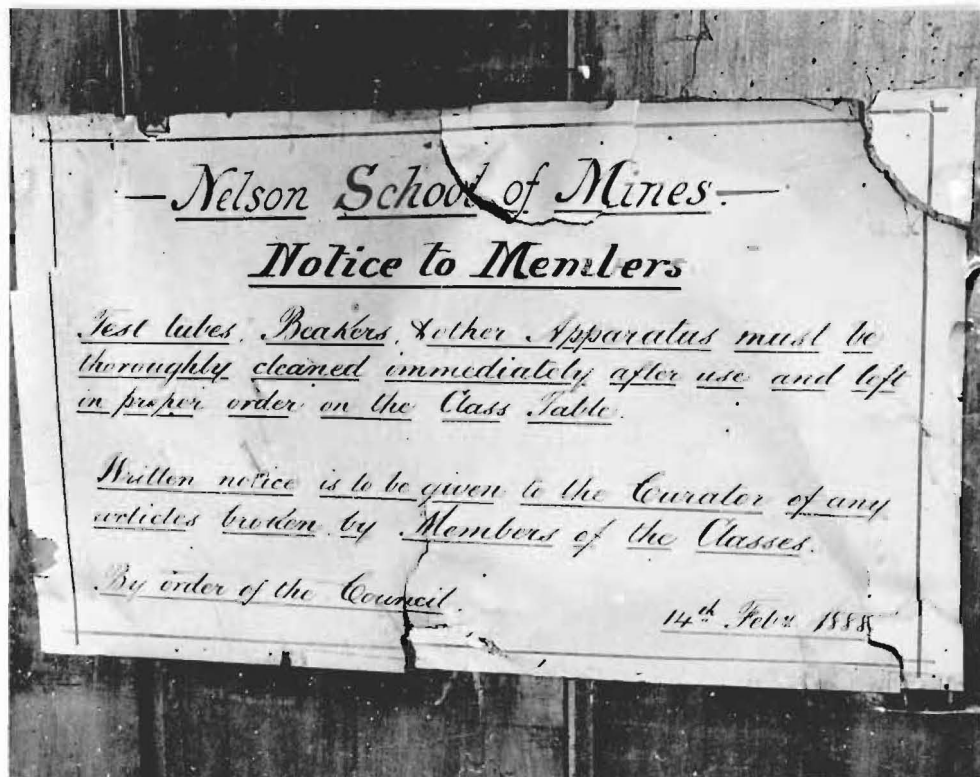 — Nelson School of Mines. —
Notice to Members
Test tubes, Beakers, & other Apparatus must be
thoroughly cleaned immediately after use and left
in proper order on the Class Table.
Written notice is to be given to the Curator of any
articles broken by Members of the Classes.
By order of the Council.
14th Feby 1888